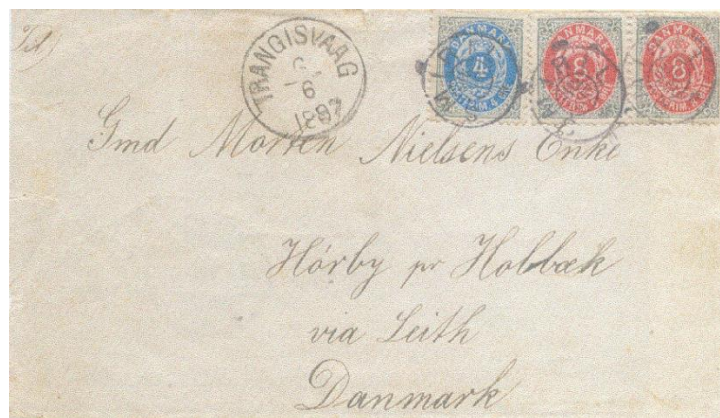 Til
TRANGISVAAG
6
1897
DANMARK
4
DANMARK
8
DANMARK
8
Gmd Morten Nielsens Enke
Hórby pr Holbæk
via Leith
Danmark